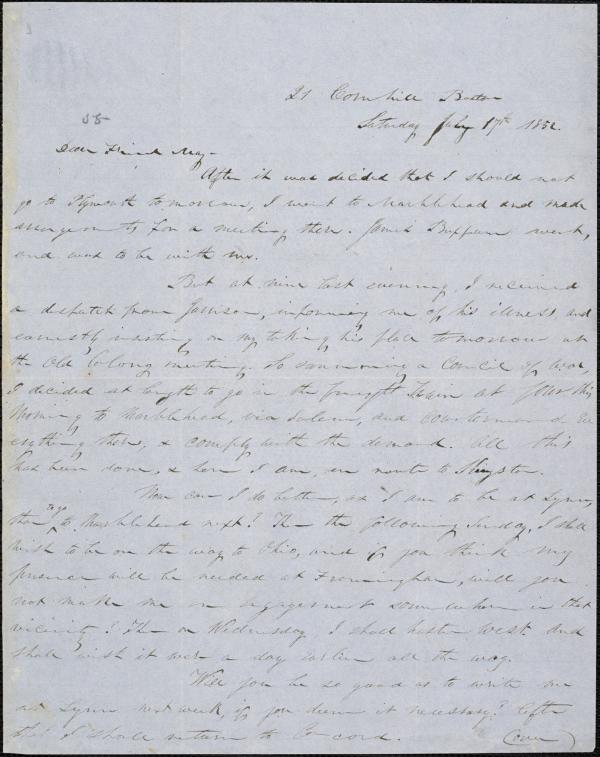 58
21 Cornhill Boston
Saturday July 17th 1852.
Dear Friend May-
After it was decided that I should not
go to Plymouth tomorrow, I went to Marblehead and made
arrangements for a meeting there. James Buffum went,
and was to be with me.
But at nine last evening, I received
a dispatch from Garrison, informing me of his illness, and
earnestly insisting on my taking his place tomorrow at
the Old Colony meeting. So summoning a Council of war,
I decided at length to go in the freight train at four this
morning to Marblehead, via Salem, and countermand Ev
erything there, & comply with the demand. All this
has been done, & here I am, en route to Kingston.
Now can I do better, as I am to be at Lynn,
then go to Marblehead next? Then the following Sunday, I shall
wish to be on the way to Ohio, and if you think my
presence will be needed at Framingham, will you
not make me an engagement somewhere in that
vicinity? Then on Wednesday, I shall hasten West and
shall wish it were a day earlier all the way.
Will you be so good as to write me
at Lynn next week, if you deem it necessary? After
that I shall return to Concord. (over)